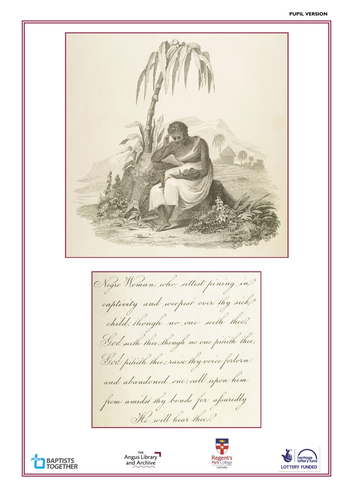 PUPIL VERSION
Negro Woman, who sittest pining in
captivity and weepest over thy sick
child; though no one seeth thee,
God seeth thee; though no one pitieth thee,
God pitieth thee; raise thy voice forlorn
and abandoned one; call upon him
from amidst thy bonds for assuredly
He will hear thee.
BAPTISTS
TOGETHER
THE
Angus Library
and Archive
Regent's
Park College
heritage
lottery fund
LOTTERY FUNDED